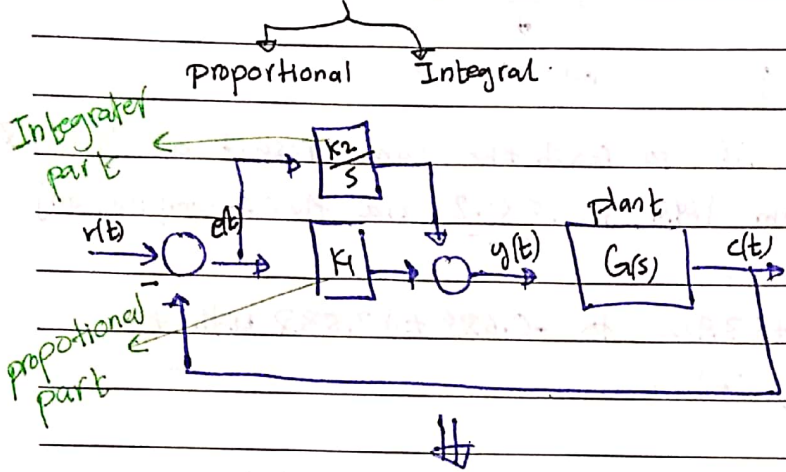 proportional Integral.
Integrater
part
K2
S
plant
r(t)
e(t)
K1
y(t)
G(s)
c(t)
-
propotional
part